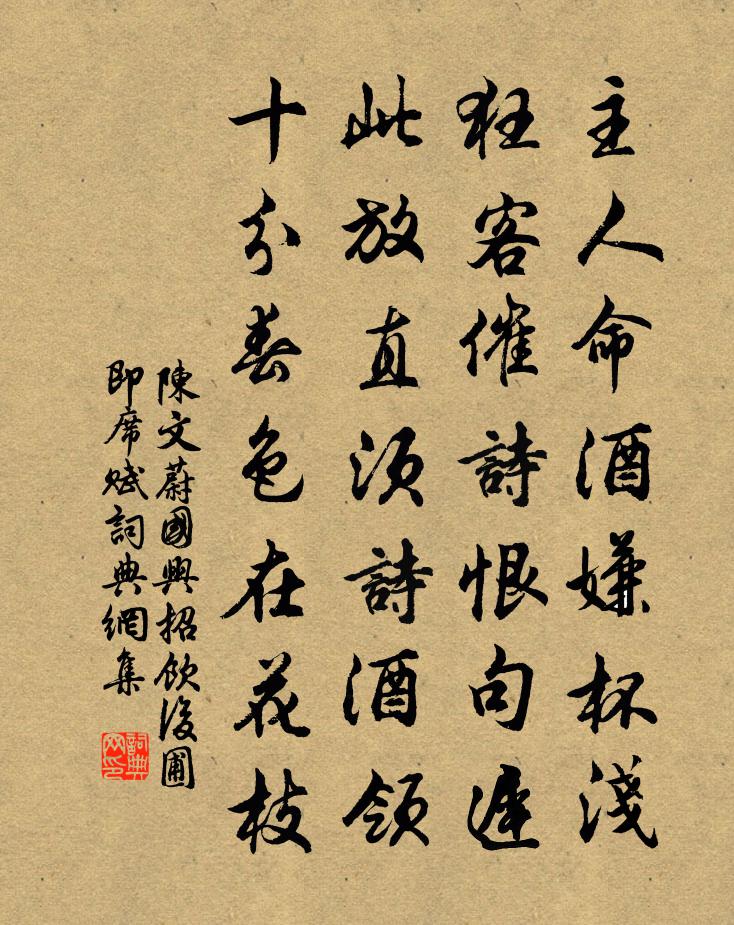 主人命酒嫌杯淺
狂客催詩恨句遲
此放直須詩酒領
十分春色在花枝
陳文蔚國興招飲後圃
即席賦詞典網集
詞典网印